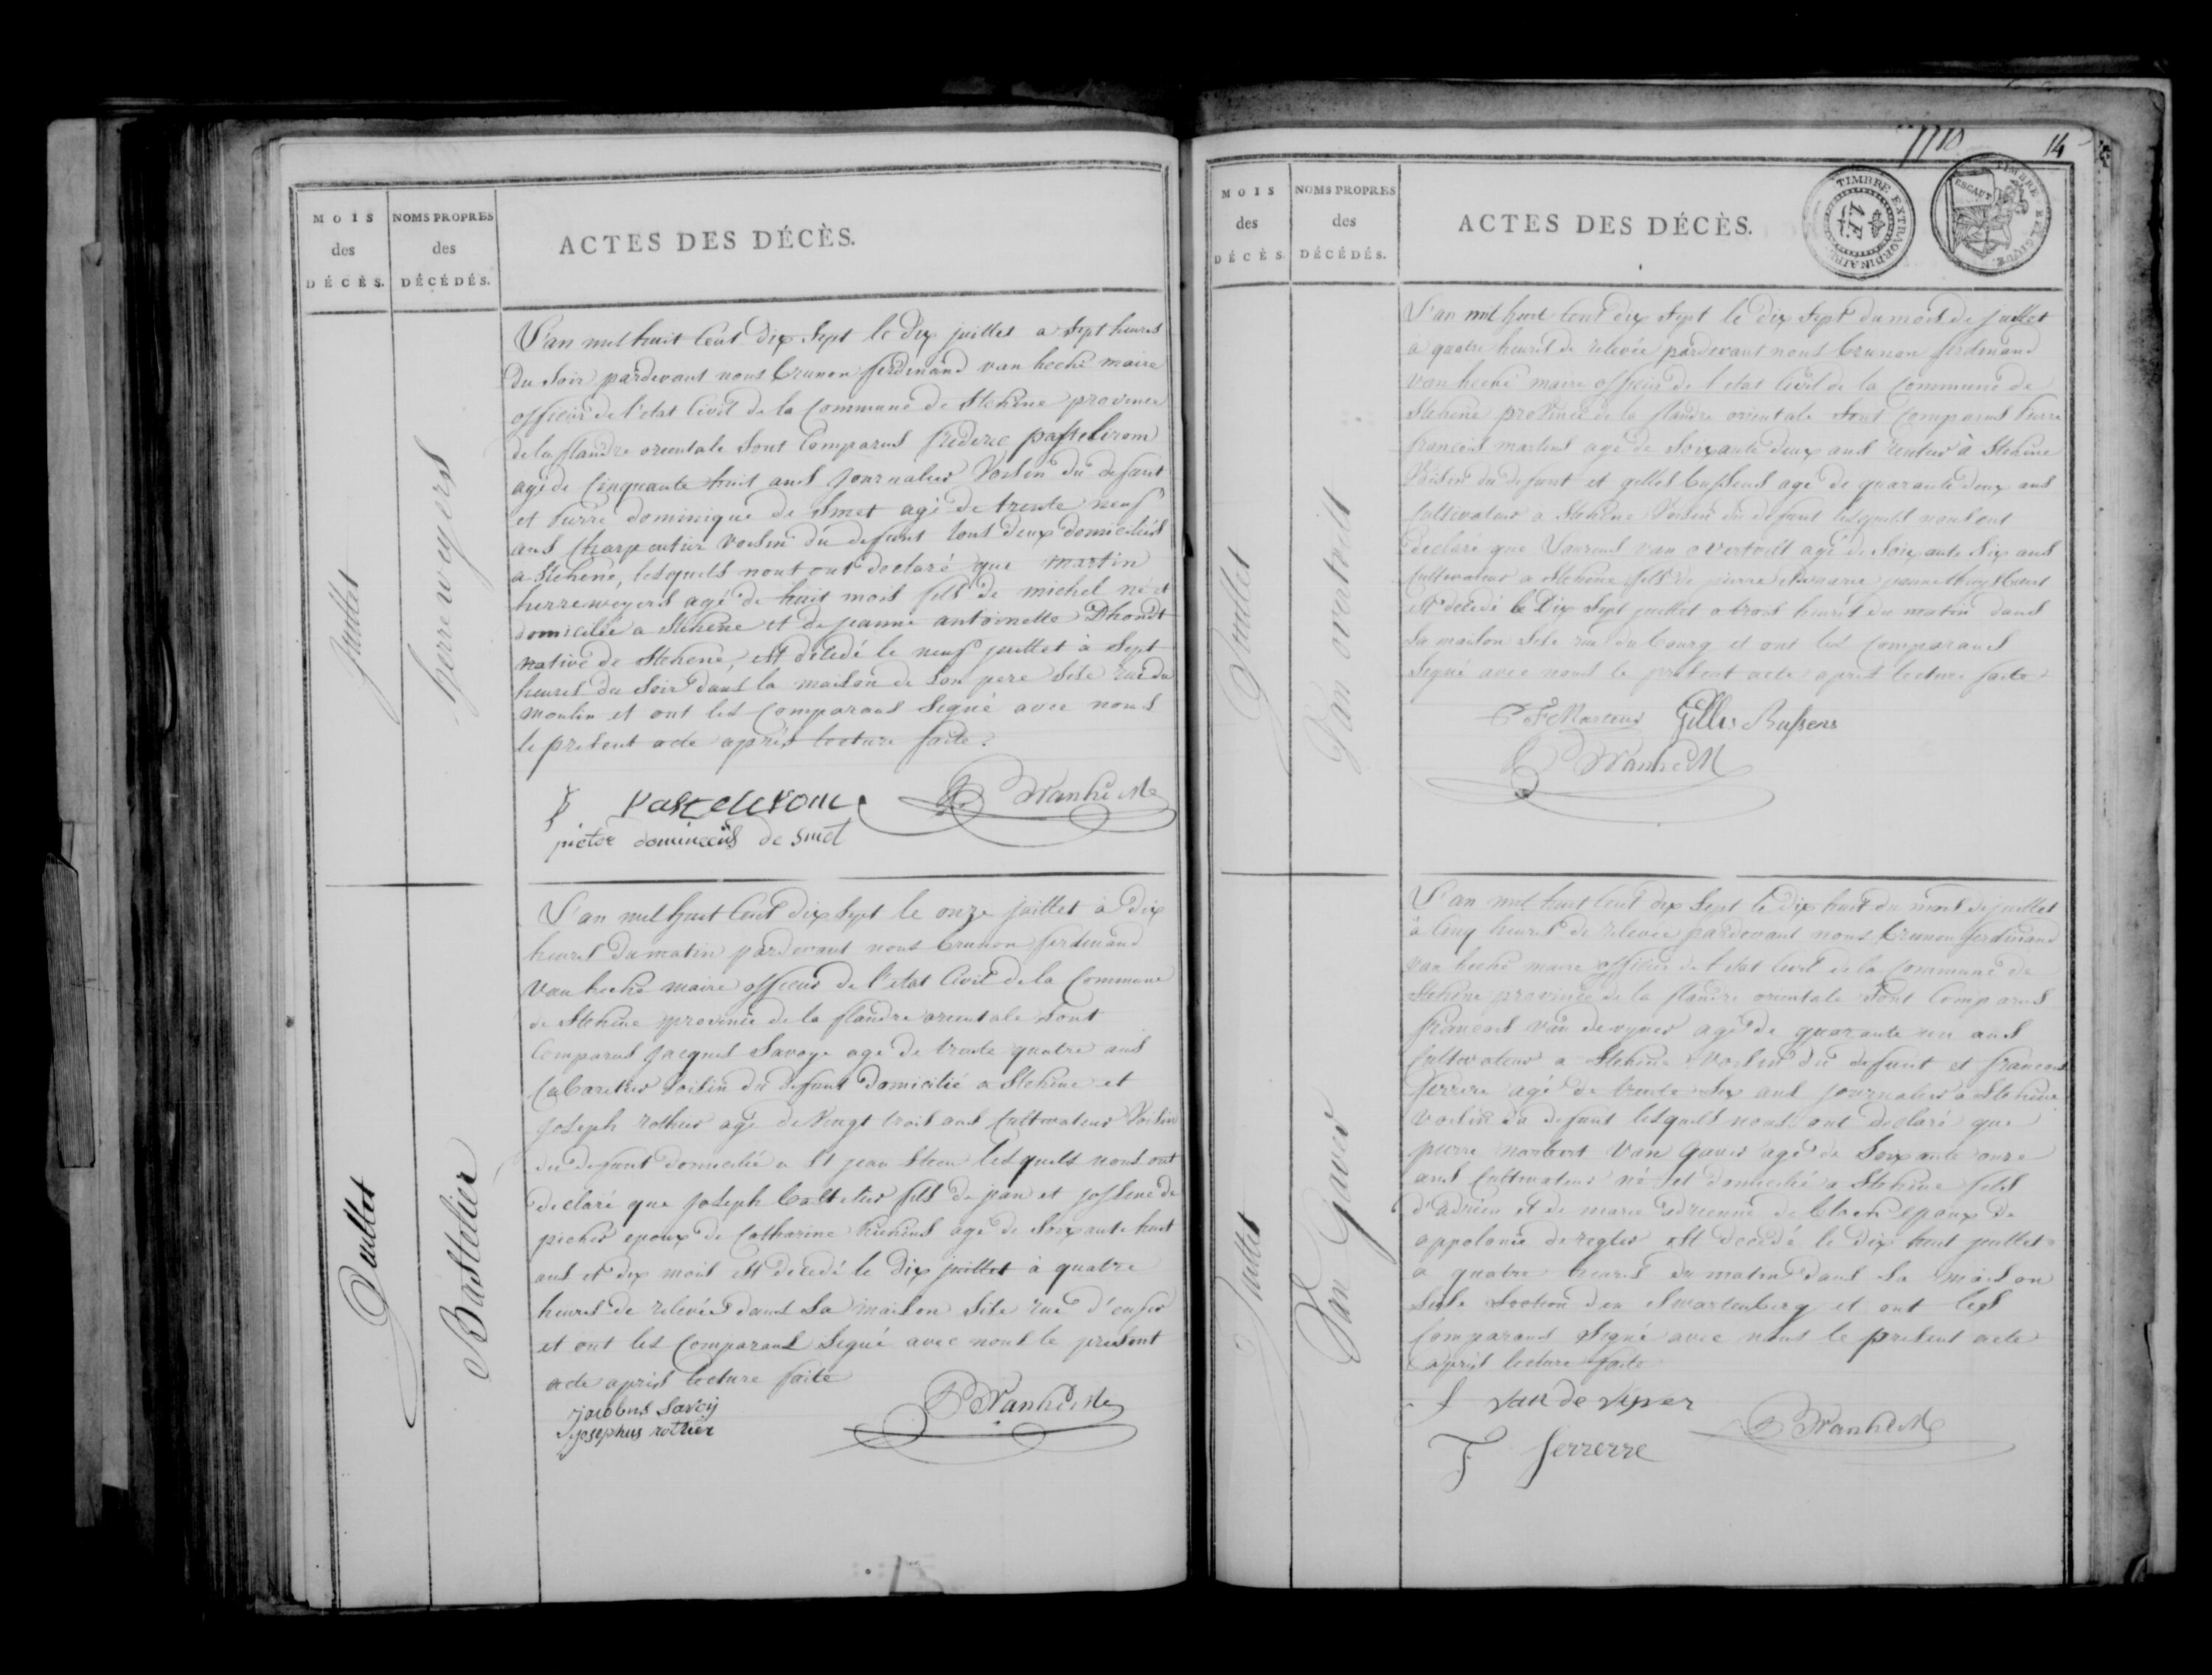 MOIS
des
DÉCÈS.
NOMS PROPRES
des
DÉCÉDÉS.
ACTES DES DÉCÈS.
Juillet
herreweyers
L'an mil huit Cent Dix Sept le Dix juillet a Sept heures
Du Soir pardevant nous Brunon ferdinand van hecke maire
officier de l'etat Civil de la Commune de Stekene province
de la flandre orientale Sont Comparus frederic pastelerom
agé de Cinquante huit ans journalier Voisin du defunt
et pierre dominique de Smet agé de trente neuf
ans Charpentier voisin du defunt tous deux domiciliés
a Stekene, lesquels nous ont declaré que martin
herreweyers agé de huit mois fils de michel né et
domicilié a Stekene et de jeanne antoinette Dhondt
native de Stekene, est decedé le neuf juillet à Sept
heures du Soir dans la maison de Son pere Sise rue du
moulin et ont les Comparans Signé avec nous
le present acte aprés lecture faite.
f pastelerom
pieter dominicus de smet
Juillet
Bastelier
L'an mil huit Cent dix Sept le onze juillet à dix
heures du matin pardevant nous Brunon ferdinand
Van hecke maire officier de l'etat Civil de la Commune
de Stekene province de la flandre orientale Sont
Comparus jacques Savoye age de trente quatre ans
Cabaretier Voisin du defunt domicilié a Stekene et
joseph rothier agé de Vingt trois ans Cultivateur Voisin
du defunt domicilié a St jean Steen lesquels nous ont
declaré que joseph fils de jean et de
epoux de Catharine agé de Soixante huit
ans et dix mois est decedé le Dix juillet à quatre
heures de relevée dans Sa maison Sise rue d'enfer
et ont les Comparans Signé avec nous le present
acte aprés lecture faite
jacobus Savoij
josephus rothier
MOIS
des
DÉCÈS.
NOMS PROPRES
des
DÉCÉDÉS.
ACTES DES DÉCÈS.
14
TIMBRE EXTRAORDINAIRE
ESCAUT
Juillet
Van overtvelt
L'an mil huit Cent dix Sept le dix Sept du mois de juillet
a quatre heures de relevée pardevant nous Brunon ferdinand
van hecke maire officier de l'etat Civil de la Commune de
Stekene province de la flandre orientale Sont Comparus pierre
francois martens agé de Soixante deux ans rentier à Stekene
Voisin du defunt et gilles bussens agé de quarante deux ans
Cultivateur a Stekene Voisin du defunt lesquels nous ont
declaré que Laurens van overtvelt agé de Soixante Six ans
Cultivateur a Stekene fils de pierre et marie jeanne
est decedé le Dix Sept juillet a trois heures du matin dans
Sa maison Sise rue du bourg et ont les Comparans
Signé avec nous le present acte aprés lecture faite
P F Martens Gillis Bussens
Juillet
Van Gaver
L'an mil huit Cent dix Sept le Dix huit du mois de juillet
à Cinq heures de relevée pardevant nous Brunon ferdinand
van hecke maire officier de l'etat Civil de la Commune de
Stekene province de la flandre orientale Sont Comparus
francois van de vyver agé de quarante un ans
Cultivateur a Stekene voisin du defunt et francois
ferrere agé de trente Six ans journalier a Stekene
voisin du defunt lesquels nous ont declaré que
pierre norbert Van Gaver agé de Soixante onze
ans Cultivateur né et domicilié a Stekene fils
d'adrien et de marie adrienne epoux de
appolonie est decedé le Dix huit juillet
a quatre heures du matin dans Sa maison
Sise Section den Swartenberg et ont les
Comparans Signé avec nous le present acte
aprés lecture faite
f van de viver
F ferrerre